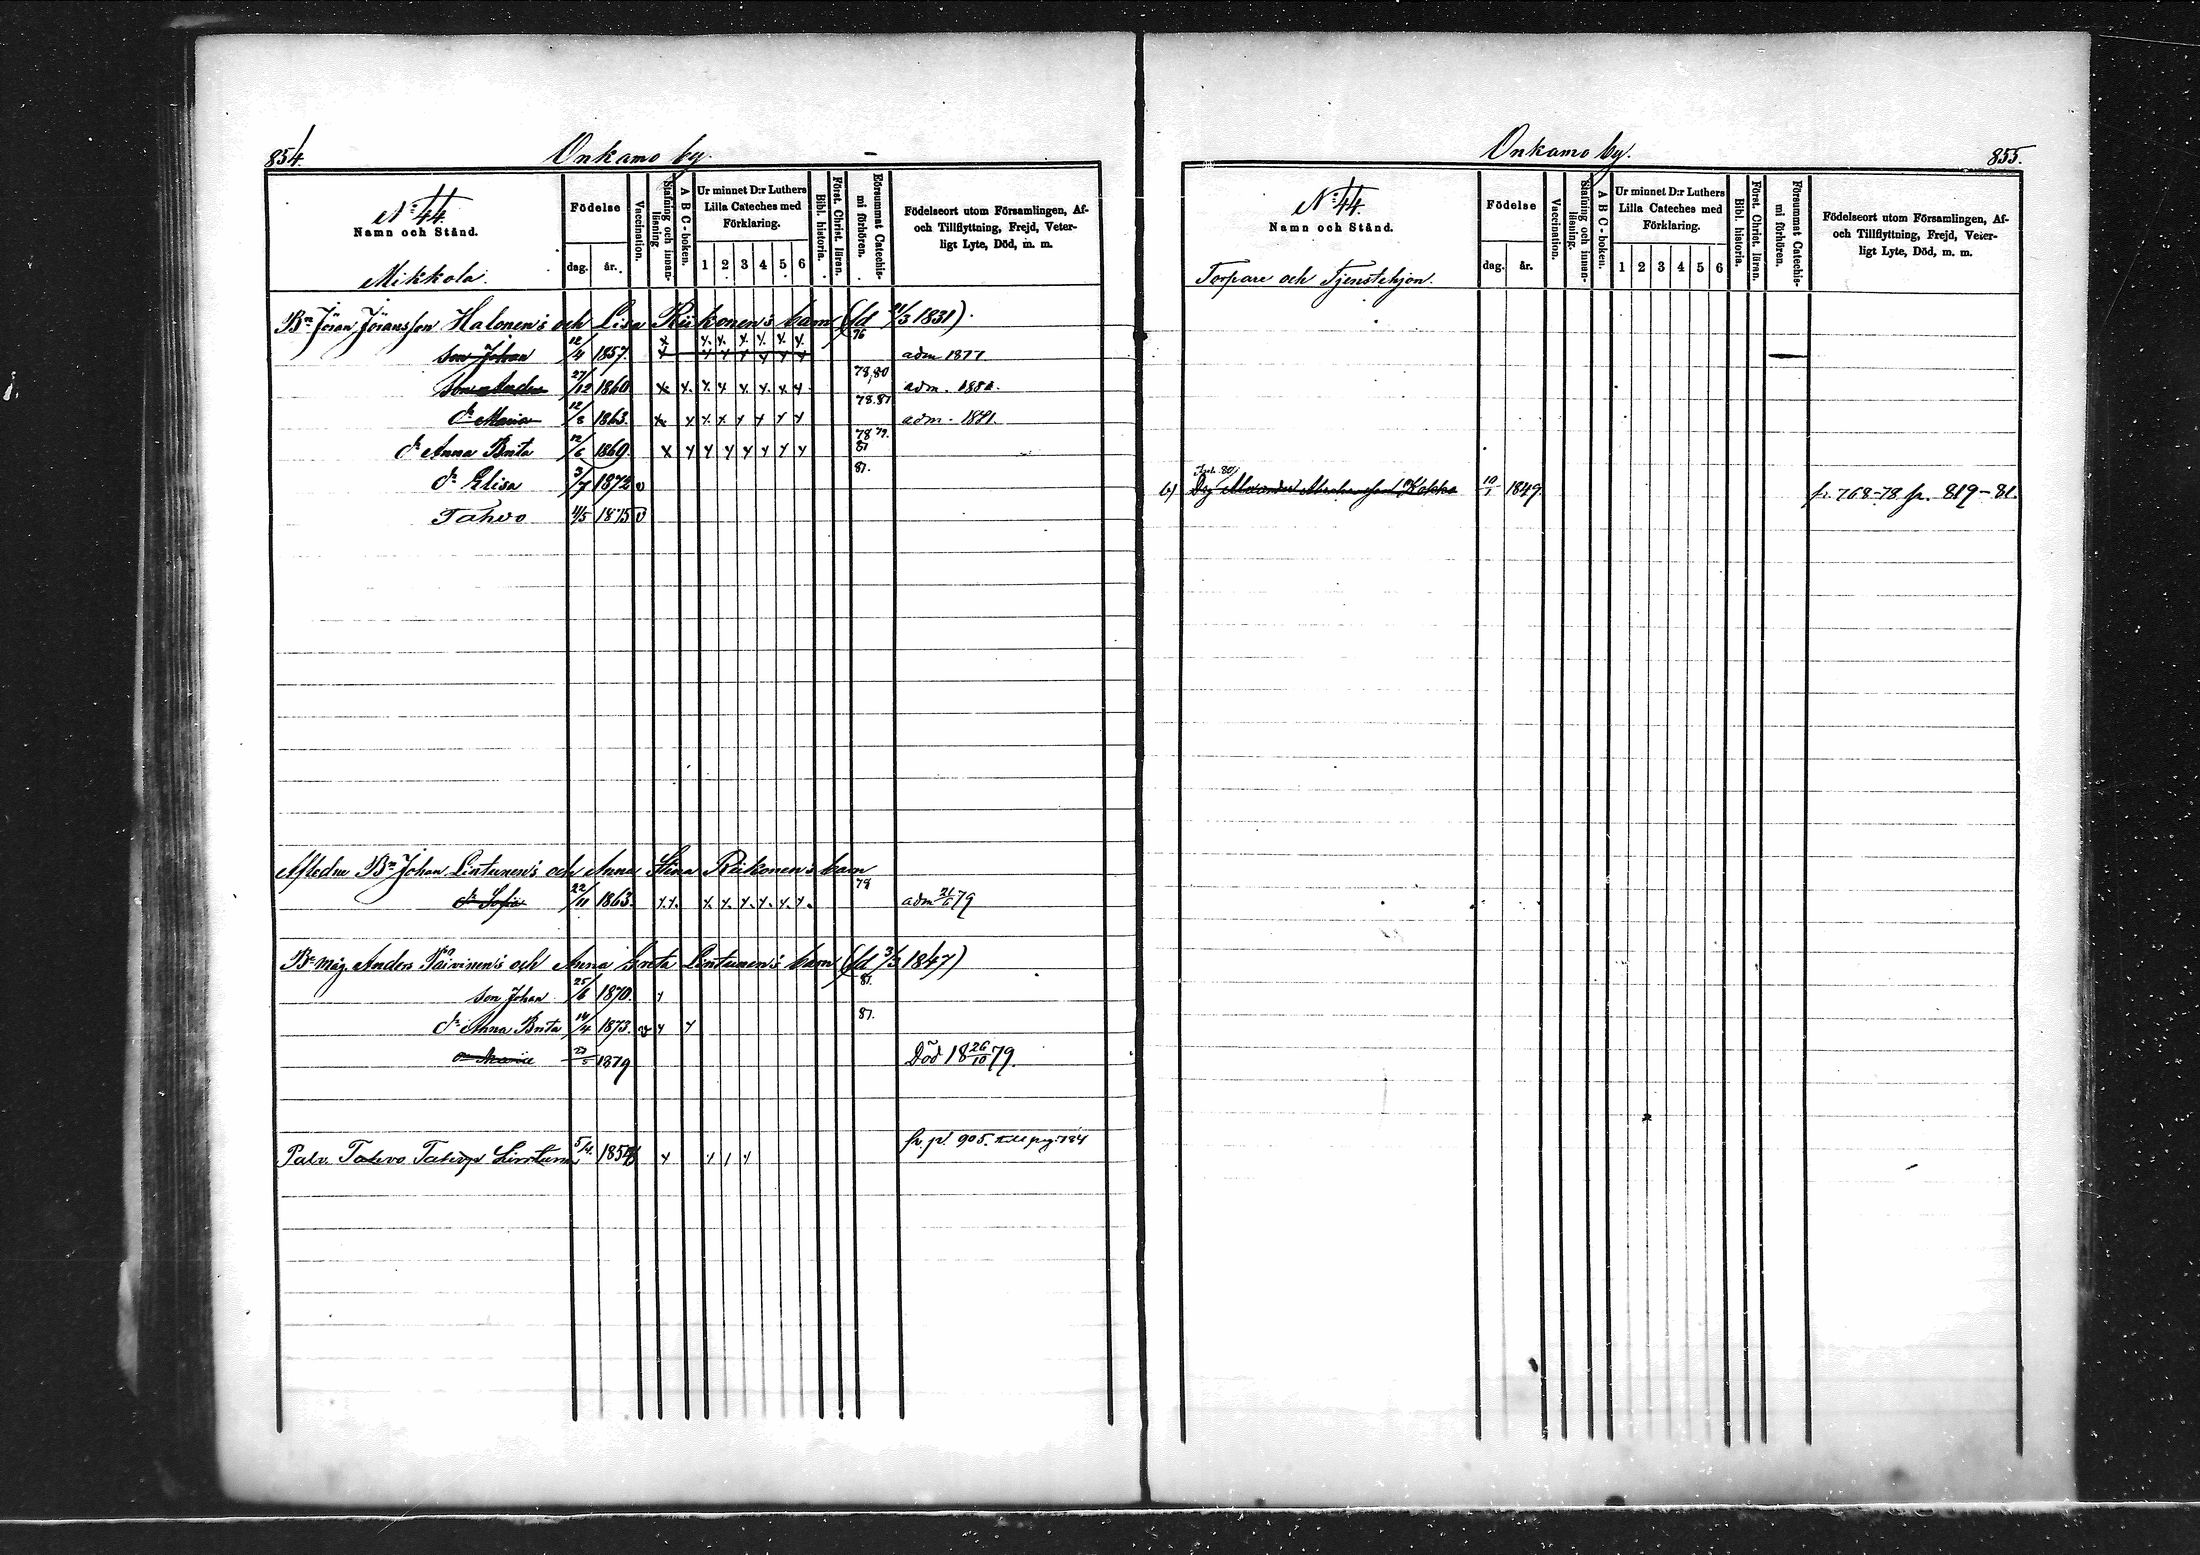 854.
Onkamo by.
N:o 44.
Namn och Stånd.
Mikkola.
Födelse
dag. år.
Vaccination.
Stafning och innan-läsning
A B C - boken.
Ur minnet D:r Luthers
Lilla Cateches med
Förklaring.
1 2 3 4 5 6
Bibl. historia.
Först. Christ. läran.
Försummat Catechis-mi förhören.
Födelseort utom Församlingen, Af-
och Tillflyttning, Frejd, Veter-
ligt Lyte, Död, m. m.
Bn Jöran Jöransson Halonen's och Lisa Riikonen's barn (fd 21/3 1831).
son Johan 12/4 1857. x x x x x x x 76 adm 1877
son Anders 27/12 1860 x x. x x x x. x x 78,80 adm. 1880.
dr Maria 12/8 1863. x x x x x x x x 78.81 adm. 1881.
dr Anna Brita 12/6 1869 x x x x x x x x 78 79. 81
dr Elisa 3/7 1872 v 81.
Tahvo 11/5 1875 v
Afledne Bn Johan Lintunen's och Anna Stina Riikonen's barn
dr Sofia 22/11 1863. x.x. x. x. x. x. x. x. 78 adm 21/6 79
Br måg Anders Päivinen's och Anna Greta Lintunen's barn (fd 3/3 1847)
son Johan 25/6 1870. x 81.
dr Anna Brita 14/4 1873. v x x 81.
1879 Död 18 26/10 79.
Palv. Tahvo Tahvop Lintunen 5/4. 185 x x x x fr p. 905. till pag. 784
Onkamo by.
855.
N:o 44.
Namn och Stånd.
Torpare och Tjenstehjon.
Födelse
dag. år.
Vaccination.
Stafning och innan-läsning.
A B C - boken.
Ur minnet D:r Luthers
Lilla Cateches med
Förklaring.
1 2 3 4 5 6
Bibl. historia.
Först. Christ. läran.
Försummat Catechis-mi förhören.
Födelseort utom Församlingen, Af-
och Tillflyttning, Frejd, Veter-
ligt Lyte, Död, m. m.
b) Drg Alexander Abrahamsson Kokko 10/1 1849. fr. 768-78 p. 819-81.